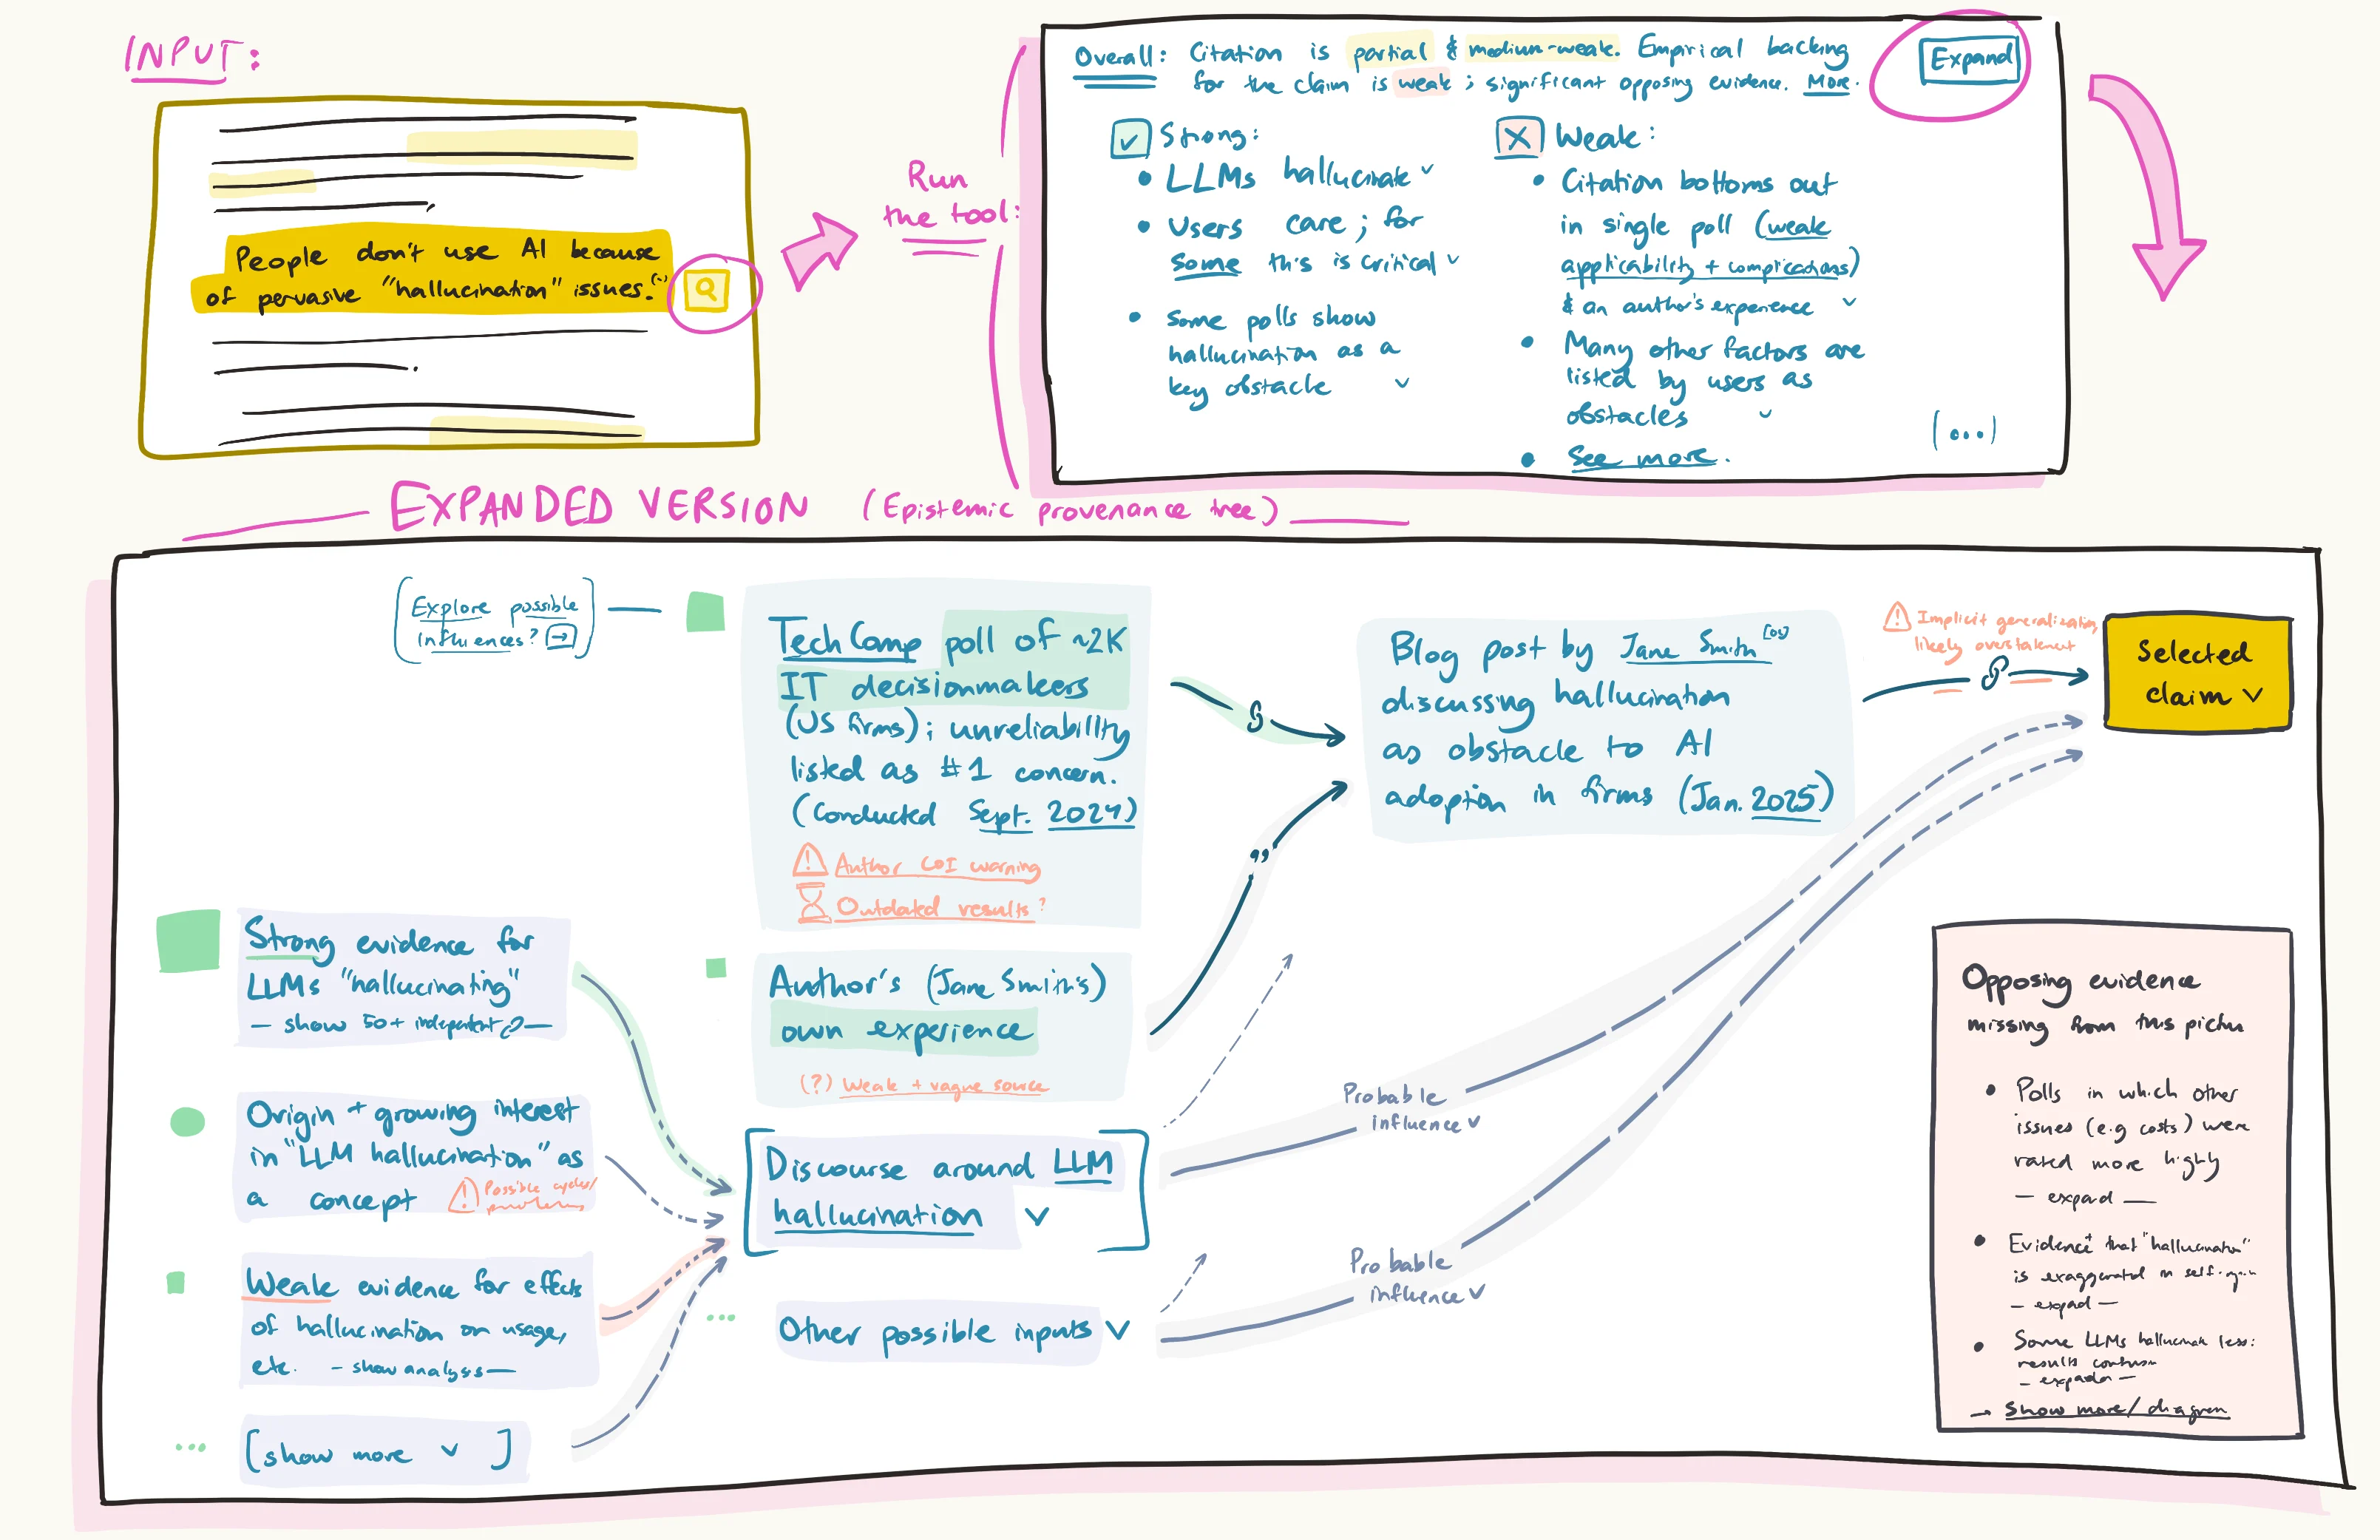 INPUT:
People don't use AI because
of pervasive "hallucination" issues.
Run
the tool:
Overall: Citation is partial & medium-weak. Empirical backing
for the claim is weak; significant opposing evidence. More.
Expand
Strong:
• LLMs hallucinate
• Users care; for
some this is critical
• Some polls show
hallucination as a
key obstacle
Weak:
• Citation bottoms out
in single poll (weak
applicability + complications)
& an author's experience
• Many other factors are
listed by users as
obstacles
• See more.
(...)
EXPANDED VERSION (Epistemic provenance tree)
[Explore possible
influences? →]
TechComp poll of ~2K
IT decisionmakers
(US firms); unreliability
listed as #1 concern.
(Conducted Sept. 2024)
Author COI warning
Outdated results?
Blog post by Jane Smith
discussing hallucination
as obstacle to AI
adoption in firms (Jan. 2025)
Implicit generalization,
likely overstatement
Selected
claim
Strong evidence for
LLMs "hallucinating"
— show 50+ independent —
Author's (Jane Smith's)
own experience
(?) Weak + vague source
Origin + growing interest
in "LLM hallucination" as
a concept
Possible cycles/
problems
[Discourse around LLM
hallucination]
Weak evidence for effects
of hallucination on usage,
etc. — show analysis —
Other possible inputs
... [show more]
Probable
influence
Probable
influence
Opposing evidence
missing from this picture
• Polls in which other
issues (e.g costs) were
rated more highly
— expand —
• Evidence that "hallucination"
is exaggerated in
— expand —
• Some LLMs hallucinate less:
results
— expand —
→ Show more/ diagram